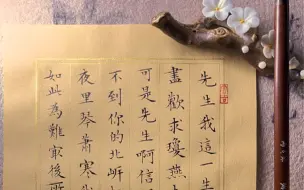 先生我這一生
盡歡求瓊燕
可是先生啊信
不到你的北岍
夜里琴蕭寒
如此為難最後所